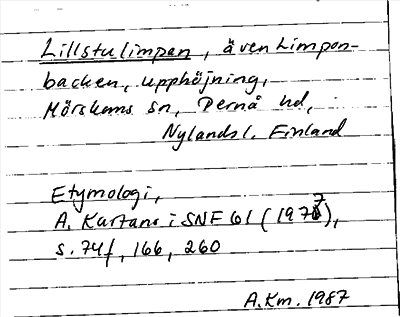 Lillstulimpan, även Limpon-
backen, upphöjning,
Mörskoms sn, Pernå hd,
Nylands l. Finland
Etymologi,
A. Karsten i SNF 61 (1977),
s. 74f, 166, 260
A.Km. 1987